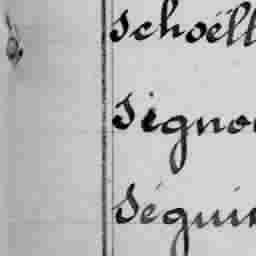 Schoëll
Signo
Séguin